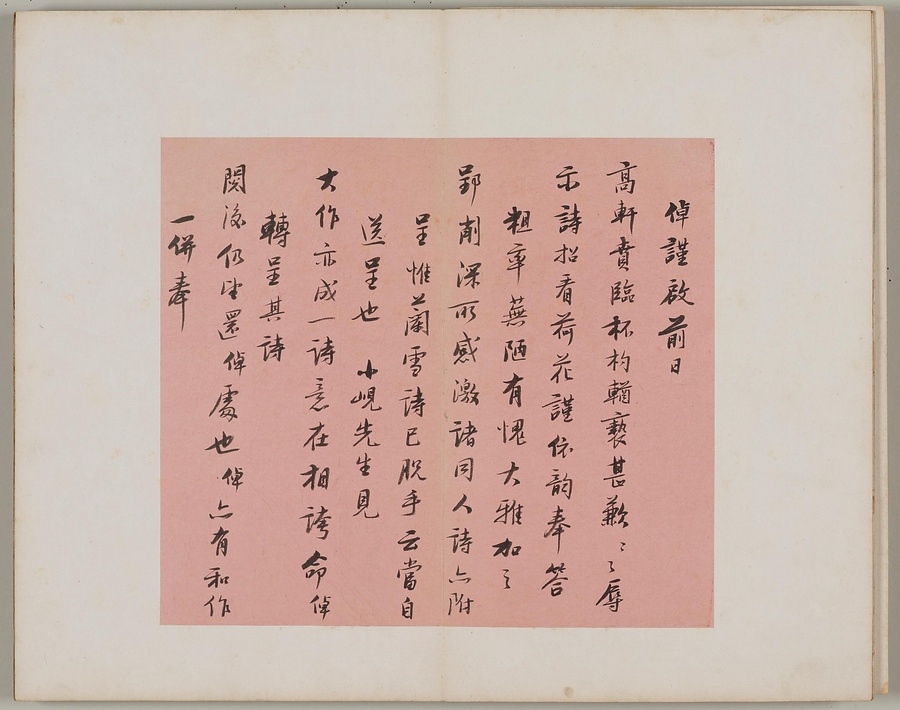 倬謹啟前日
高軒賁臨杯杓輶褻甚歉〻〻辱
示詩招看荷花謹依韵奉答
粗率蕪陋有愧大雅加之
郢削深所感激諸同人詩亦附
呈惟蘭雪詩已脫手云當自
送呈也 小峴先生見
大作亦成一詩意在相誇命倬
轉呈其詩
閱後仍望還倬處也倬亦有和作
一併奉